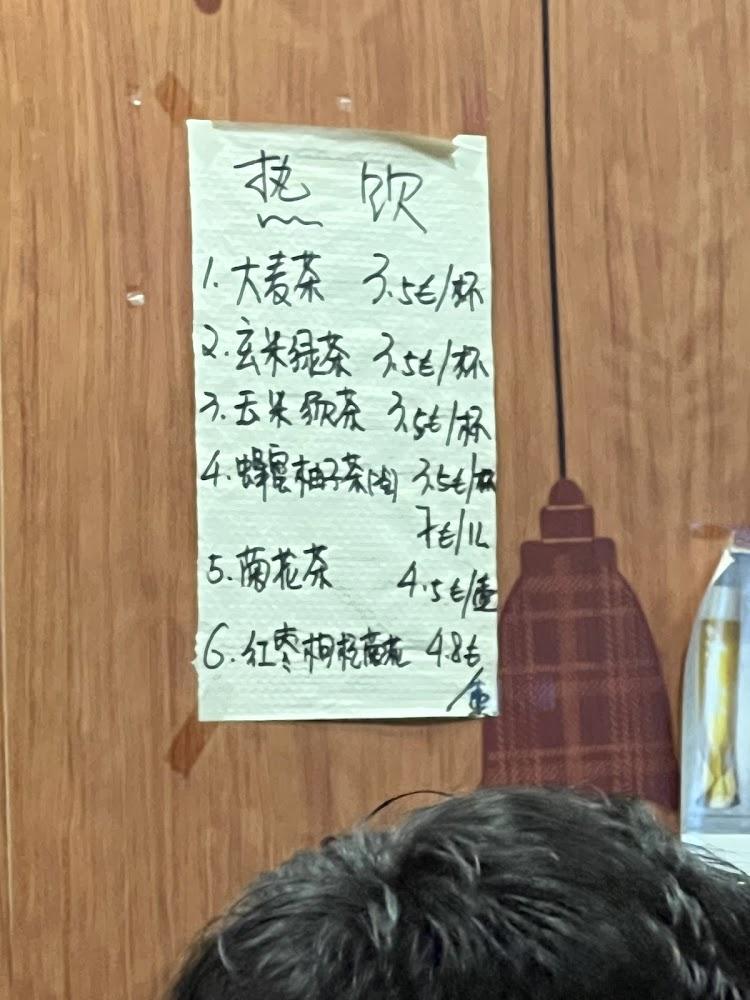 热 饮
1. 大麦茶 3.5€/杯
2. 玄米绿茶 3.5€/杯
3. 玉米须茶 3.5€/杯
4. 蜂蜜柚子茶 3.5€/杯
7€/1L
5. 菊花茶 4.5€/壶
6. 红枣枸杞菊花 4.8€
/壶